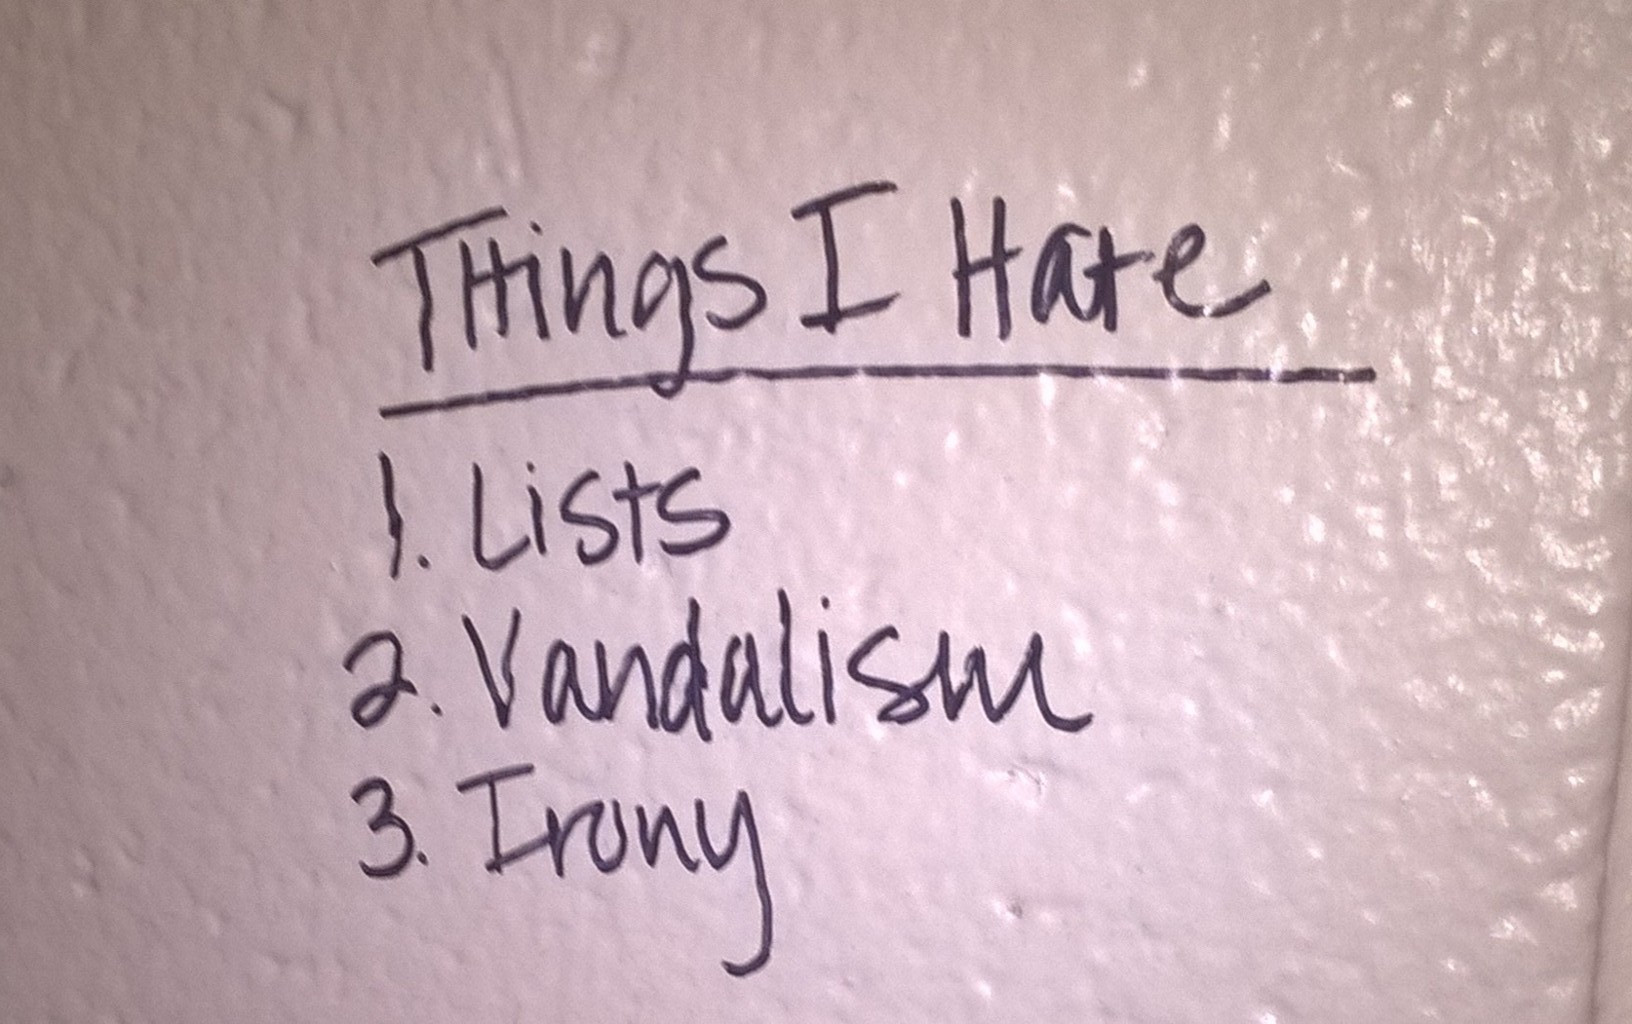 THings I Hate
1. Lists
2. Vandalism
3. Irony